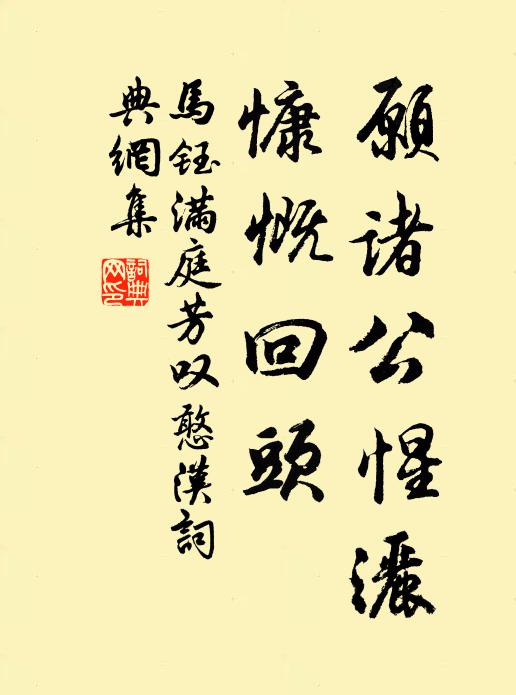 願諸公惺灑
慷慨回頭
馬鈺滿庭芳叹憨漢詞
典網集
詞典網印